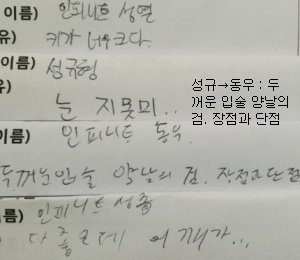 이름) 인피니트 성열
유) 키가 너무크다.
이름) 성규형
눈 지못미..
이름) 인피니트 동우
두꺼운입술 양날의 검. 장점과 단점
성규→동우 : 두
꺼운 입술 양날의
검. 장점과 단점
름) 인피니트 성종
) 다 좋은데 어깨가...